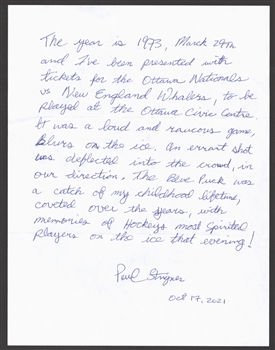 The year is 1973, March 29th
and I've been presented with
tickets for the Ottawa Nationals
vs New England Whalers, to be
played at the Ottawa Civic Centre.
It was a loud and raucous game,
Blurs on the ice. An errant shot
was deflected into the crowd, in
our direction. The Blue Puck was
a catch of my childhood lifetime,
coveted over the years, with
memories of Hockeys most spirited
players on the ice that evening!
Paul
Oct 17, 2021